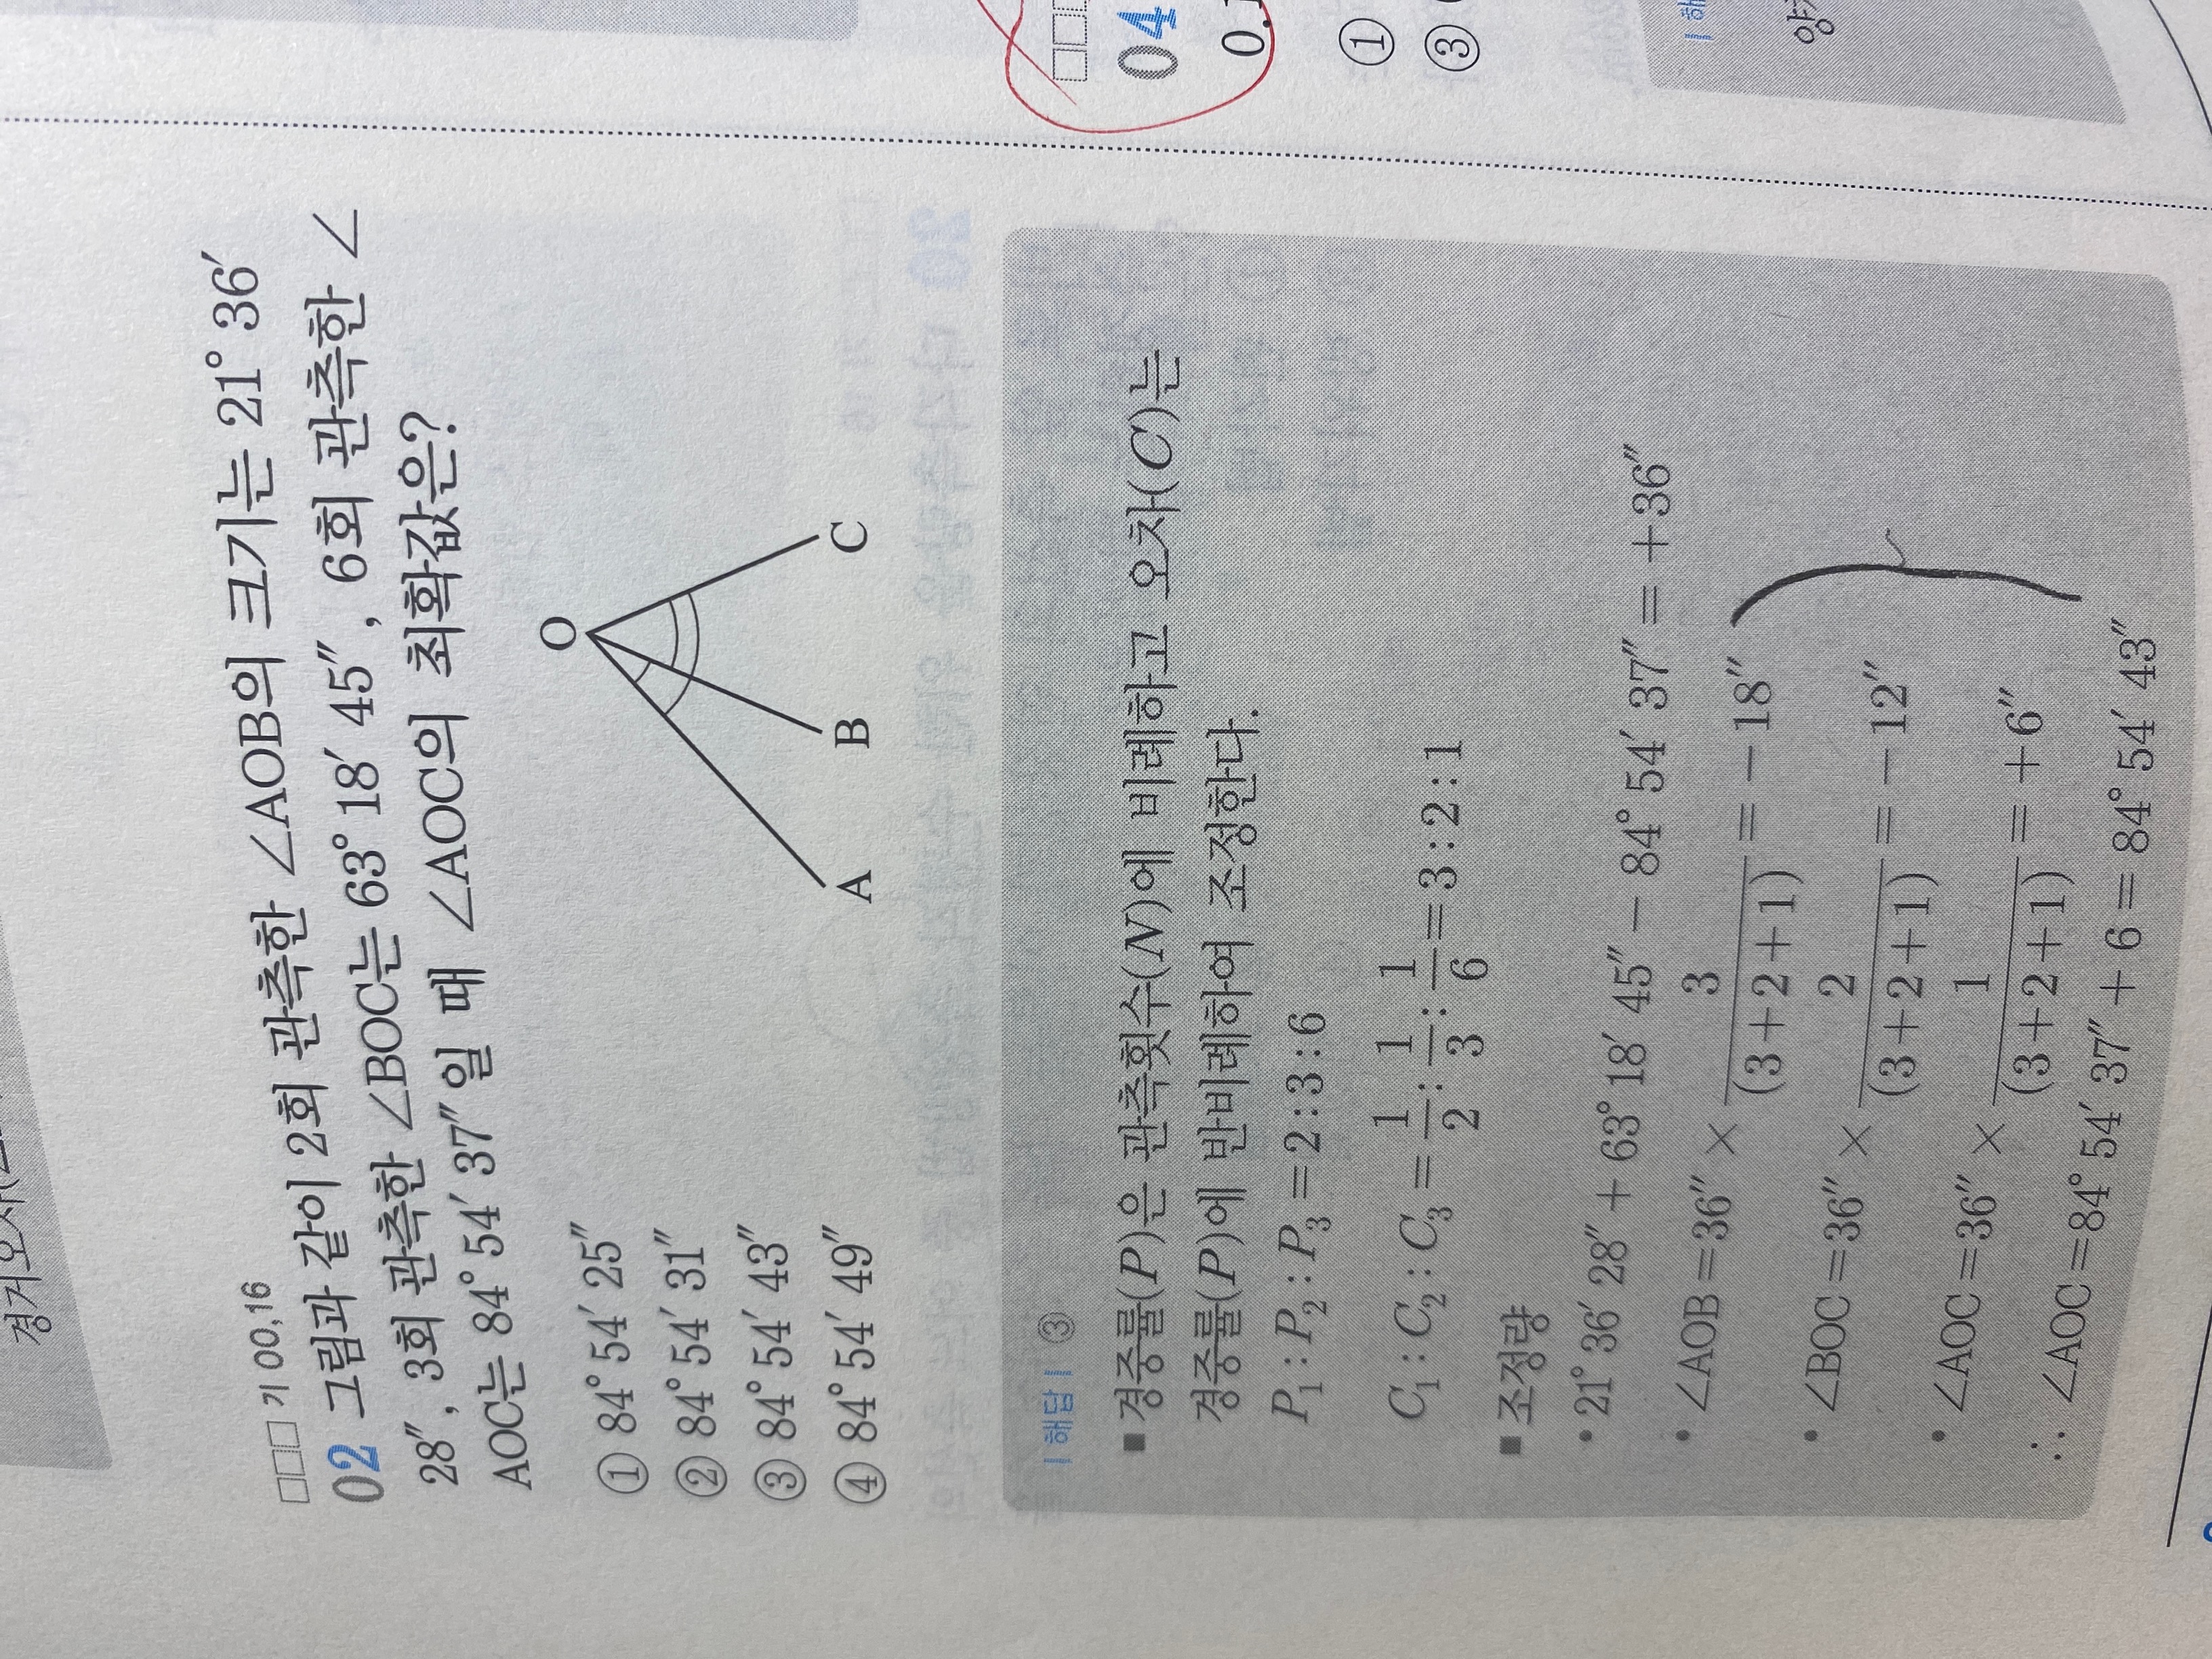 □□□ 기 00,16
02 그림과 같이 2회 관측한 ∠AOB의 크기는 21° 36′
28″, 3회 관측한 ∠BOC는 63° 18′ 45″, 6회 관측한 ∠
AOC는 84° 54′ 37″일 때 ∠AOC의 최확값은?
① 84° 54′ 25″
② 84° 54′ 31″
③ 84° 54′ 43″
④ 84° 54′ 49″
O
A
B
C
| 해답 | ③
■ 경중률(P)은 관측횟수(N)에 비례하고 오차(C)는
경중률(P)에 반비례하여 조정한다.
P₁ : P₂ : P₃ = 2 : 3 : 6
C₁ : C₂ : C₃ = 1/2 : 1/3 : 1/6 = 3 : 2 : 1
■ 조정량
• 21° 36′ 28″ + 63° 18′ 45″ − 84° 54′ 37″ = +36″
• ∠AOB = 36″ × 3/(3+2+1) = −18″
• ∠BOC = 36″ × 2/(3+2+1) = −12″
• ∠AOC = 36″ × 1/(3+2+1) = +6″
∴ ∠AOC = 84° 54′ 37″ + 6 = 84° 54′ 43″
04
①
③